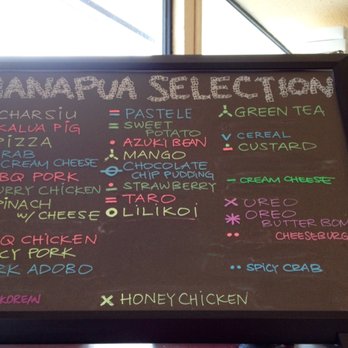 MANAPUA SELECTION
CHARSIU
KALUA PIG
PIZZA
CRAB
CREAM CHEESE
BBQ PORK
CURRY CHICKEN
SPINACH
w/ CHEESE
BBQ CHICKEN
SPICY PORK
PORK ADOBO
KOREAN
= PASTELE
= SWEET
POTATO
• AZUKI BEAN
MANGO
CHOCOLATE
CHIP PUDDING
STRAWBERRY
= TARO
LILIKOI
X HONEY CHICKEN
GREEN TEA
v CEREAL
CUSTARD
- CREAM CHEESE
X OREO
* OREO
BUTTER BOM
•• CHEESEBURG
•• SPICY CRAB